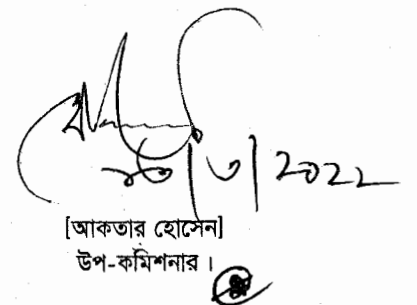 /৩/2022
[আকতার হোসেন]
উপ-কমিশনার।